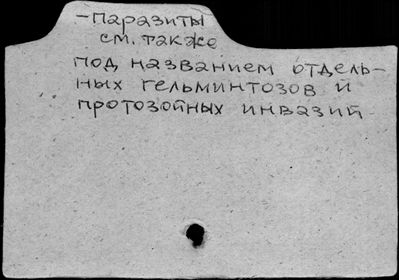 -Паразиты
см. также
под названием отдель-
ных гельминтозов и
протозойных инвазий